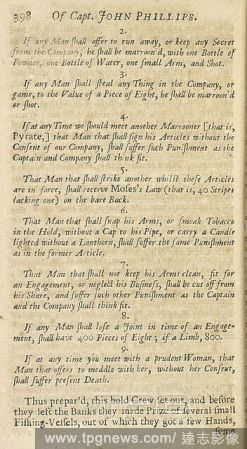 398 Of Capt. JOHN PHILLIPS.
2.
If any Man ſhall offer to run away, or keep any Secret
from the Company, he ſhall be marroon'd, with one Bottle of
Powder, one Bottle of Water, one ſmall Arm, and Shot.
3.
If any Man ſhall ſteal any Thing in the Company, or
game, to the Value of a Piece of Eight, he ſhall be marroon'd
or ſhot.
4.
If at any Time we ſhould meet another Marrooner [that is,
Pyrate,] that Man that ſhall ſign his Articles without the
Conſent of our Company, ſhall ſuffer ſuch Puniſhment as the
Captain and Company ſhall think fit.
5.
That Man that ſhall ſtrike another whilſt theſe Articles
are in force, ſhall receive Moſes's Law (that is, 40 Stripes
lacking one) on the bare Back.
6.
That Man that ſhall ſnap his Arms, or ſmoak Tobacco
in the Hold, without a Cap to his Pipe, or carry a Candle
lighted without a Lanthorn, ſhall ſuffer the ſame Puniſhment
as in the former Article.
7.
That Man that ſhall not keep his Arms clean, fit for
an Engagement, or neglect his Buſineſs, ſhall be cut off from
his Share, and ſuffer ſuch other Puniſhment as the Captain
and the Company ſhall think fit.
8.
If any Man ſhall loſe a Joint in time of an Engage-
ment, ſhall have 400 Pieces of Eight; if a Limb, 800.
9.
If at any time you meet with a prudent Woman, that
Man that offers to meddle with her, without her Conſent,
ſhall ſuffer preſent Death.
Thus prepar'd, this bold Crew ſet out, and before
they left the Banks they made Prize of ſeveral ſmall
Fiſhing-Veſſels, out of which they got a few Hands,
ſome
www.tpgnews.com 達志影像